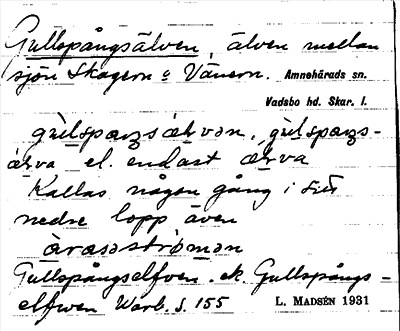 Gullspångsälven, älven mellan
sjön Skagern o Vänern. Amnehärads sn.
Vadsbo hd. Skar. l.
älva el. endast älva
Kallas någon gång i sitt
nedre lopp även
åråsströmen
Gullspångselfven. ek. Gullspångs-
elfwen Warb. s. 155 L. MADSÉN 1931